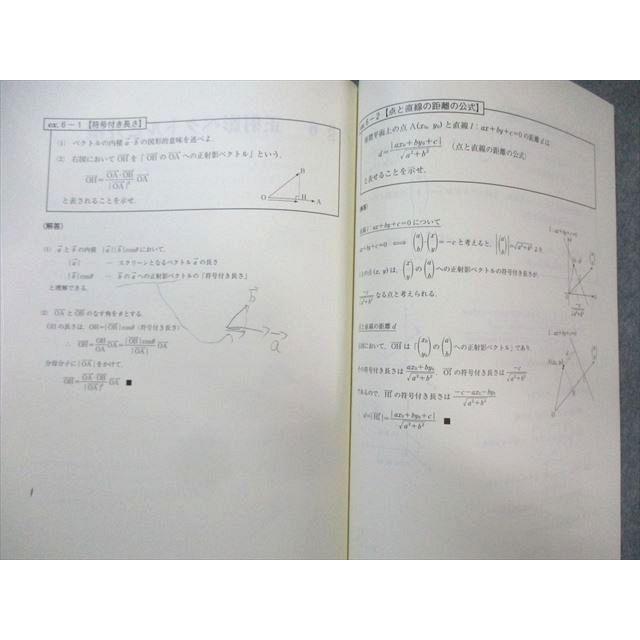 ex. 6-1 【符号付き長さ】
(1) ベクトルの内積 a⃗・b⃗ の図形的意味を述べよ.
(2) 右図において OH⃗ を「OB⃗ の OA⃗ への正射影ベクトル」という.
OH⃗ = (OA⃗・OB⃗)/|OA⃗|² OA⃗
と表されることを示せ.
O H A B
(解答)
(1) a⃗ と b⃗ の内積 |a⃗||b⃗|cosθ において,
|a⃗| ─ スクリーンとなるベクトル a⃗ の長さ
|b⃗|cosθ ─ b⃗ の a⃗ への正射影ベクトルの「符号付き長さ」
と理解できる.
b⃗
a⃗
(2) OA⃗ と OB⃗ のなす角を θ とする.
OH の長さは, OH=|OB⃗|cosθ (符号付き長さ)
∴ OH⃗ = OH/OA OA⃗ = |OB⃗|cosθ/|OA⃗| OA⃗
分母分子に |OA⃗| をかけて,
OH⃗ = (OA⃗・OB⃗)/|OA⃗|² OA⃗ ■
【点と直線の距離の公式】
平面上の点 A(x₀, y₀) と直線 l : ax+by+c=0 の距離 d は
d = |ax₀+by₀+c|/√(a²+b²) (点と直線の距離の公式)
と表せることを示せ.
(解答)
l : ax+by+c=0 について
ax+by+c=0 ⇔ (a b)・(x y) = −c と考えると, |(a b)| = √(a²+b²) より
l の点 (x, y) は, (x y) の (a b) への正射影ベクトルの符号付き長さが,
−c/√(a²+b²) なる点と考えられる.
点と直線の距離 d
図において, OH⃗ は「(x₀ y₀) の (a b) への正射影ベクトル」であり,
その符号付き長さは (ax₀+by₀)/√(a²+b²) OI⃗ の符号付き長さは −c/√(a²+b²)
であるので, HI⃗ の符号付き長さは (−c−ax₀−by₀)/√(a²+b²)
d=|HI⃗| = |ax₀+by₀+c|/√(a²+b²) ■
l : ax+by+c=0